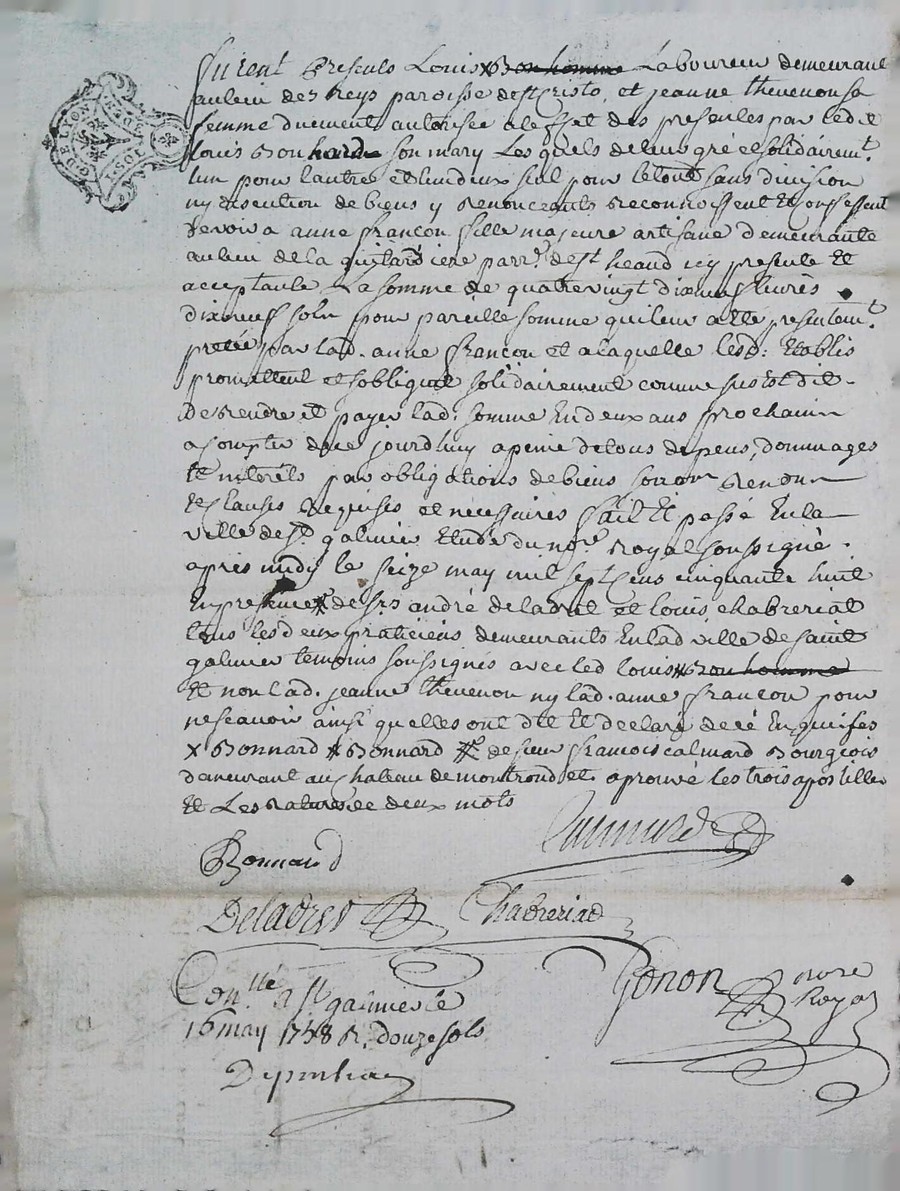 Furent Presents Louis x Bonhomme Laboureur demeurant
au lieu des Reys paroisse de st Cristo, et jeanne thevenon sa
femme duement autorisée a leffet des presentes par led it
louis Bonhard son mary Les quels de leur gré et solidairemt.
lun pour lautre et lun deux seul pour le tout sans division
ny discution de biens y Renonceants Reconnoissent et Confessent
devoir a anne françon fille majeure artisane demeurante
au lieu de la parr. de st heand icy presente Et
acceptante La somme de quatrevingt dixneuf livres
dixneuf sols pour pareille somme qui leur a été presentemt.
pretée par lad. anne françon et a laquelle lesd: Etablis
promettent et sobligent solidairement comme sustot dit
de Rendre et payer lad. somme En deux ans prochain
a Compter de ce jourdhuy a peine de tous depens, dommages
Et interets par obligations de biens Renon
Et Clauses Requises et necessaires fait Et passé En la
ville de st. galmier Etude du nore. Royal soussigné
après midy le seize may mil sept Cens cinquante huit
En presence de srs andré deladret et louis chabreriat
tous les deux praticiens demeurants En lad ville de saint
galmier temoins soussignés avec led louis x Bonhomme
Et non lad. jeanne thevenon ny lad. anne françon pour
ne scavoir ainsi quelles ont dit Et declaré de ce Enquises
x Bonnard x Bonnard x de sieur francois calmard Bourgeois
demeurant au Chateau de montrond et aprouvé les trois apostilles
Et Les ratures de deux mots
Bonnard
Calmard
Deladret Chabreriat
Gonon nore
Royal
Conllé a st galmier le
16 may 1758 R. douze sols